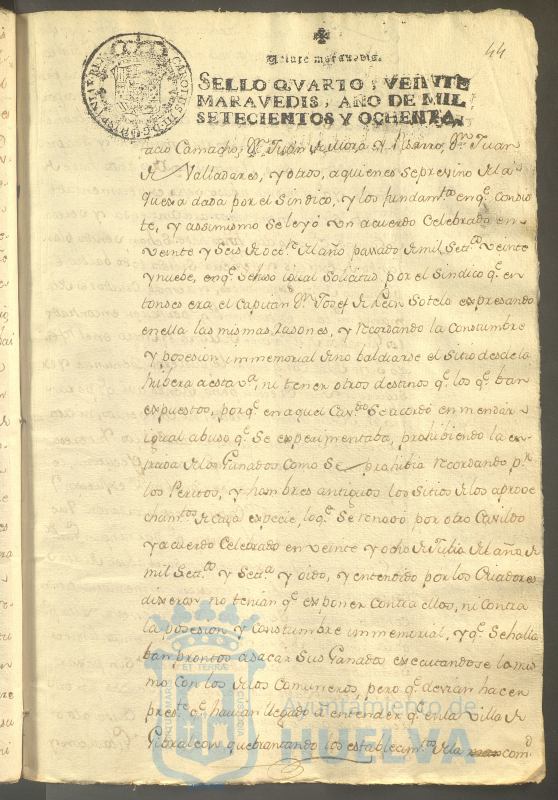 44
Veinte maravedis.
SELLO QVARTO, VEINTE
MARAVEDIS, AÑO DE MIL
SETECIENTOS Y OCHENTA.
CAROLUS III D G HISPANIAR REX
tacio Camacho, Dn. Juan de Mora y Pisarro, Dn. Juan
de Valladares, y otros, aquienes seprevino de la
quexa dada por el Sindico, y los fundamtos. enqe. Consis
te, y assimismo seleyó vn acuerdo Celebrado en
veinte y Seis de octe. del año passado de mil Setos. veinte
y nuebe, enqe. Sehiso igual Solicitud por el Sindico qe. en
tonses era el Capitan Dn. Josef de Leon Sotelo expresando
enella las mismas rasones, y recordando la Constumbre
y posesion immemorial de no baldiarse el Sitio desde la
Ribera aesta va., ni tener otros destinos qe. los qe. ban
expuestos, porqe. en aquel Cavdo. Se acordó enmendar
igual abuso qe. Se experimentaba, prohibiendo la en
trada de los Ganados Como Se prohibia recordando pr.
los Peritos, y hombres antiguos los Sitios de los aprove
chamtos. de Cada expecie, loqe. Se renobó por otro Cavildo
y acuerdo Celebrado en veinte y ocho de Julio del año de
mil Setos. y Seta. y oido, y entendido por los Criadores
dixeron no tenian qe. exponer Contra ellos, ni Contra
la posesion y Constumbre immemorial, y qe. Sehalla
ban promtos asacar Sus Ganados executandose lo mis
mo Con los de los Comuneros, pero qe. devian hacer
preste. qe. havian llegado a entender qe. enla villa de
Gibraleon quebrantando los establecimtos. de la comd.
Ayuntamiento de
HUELVA